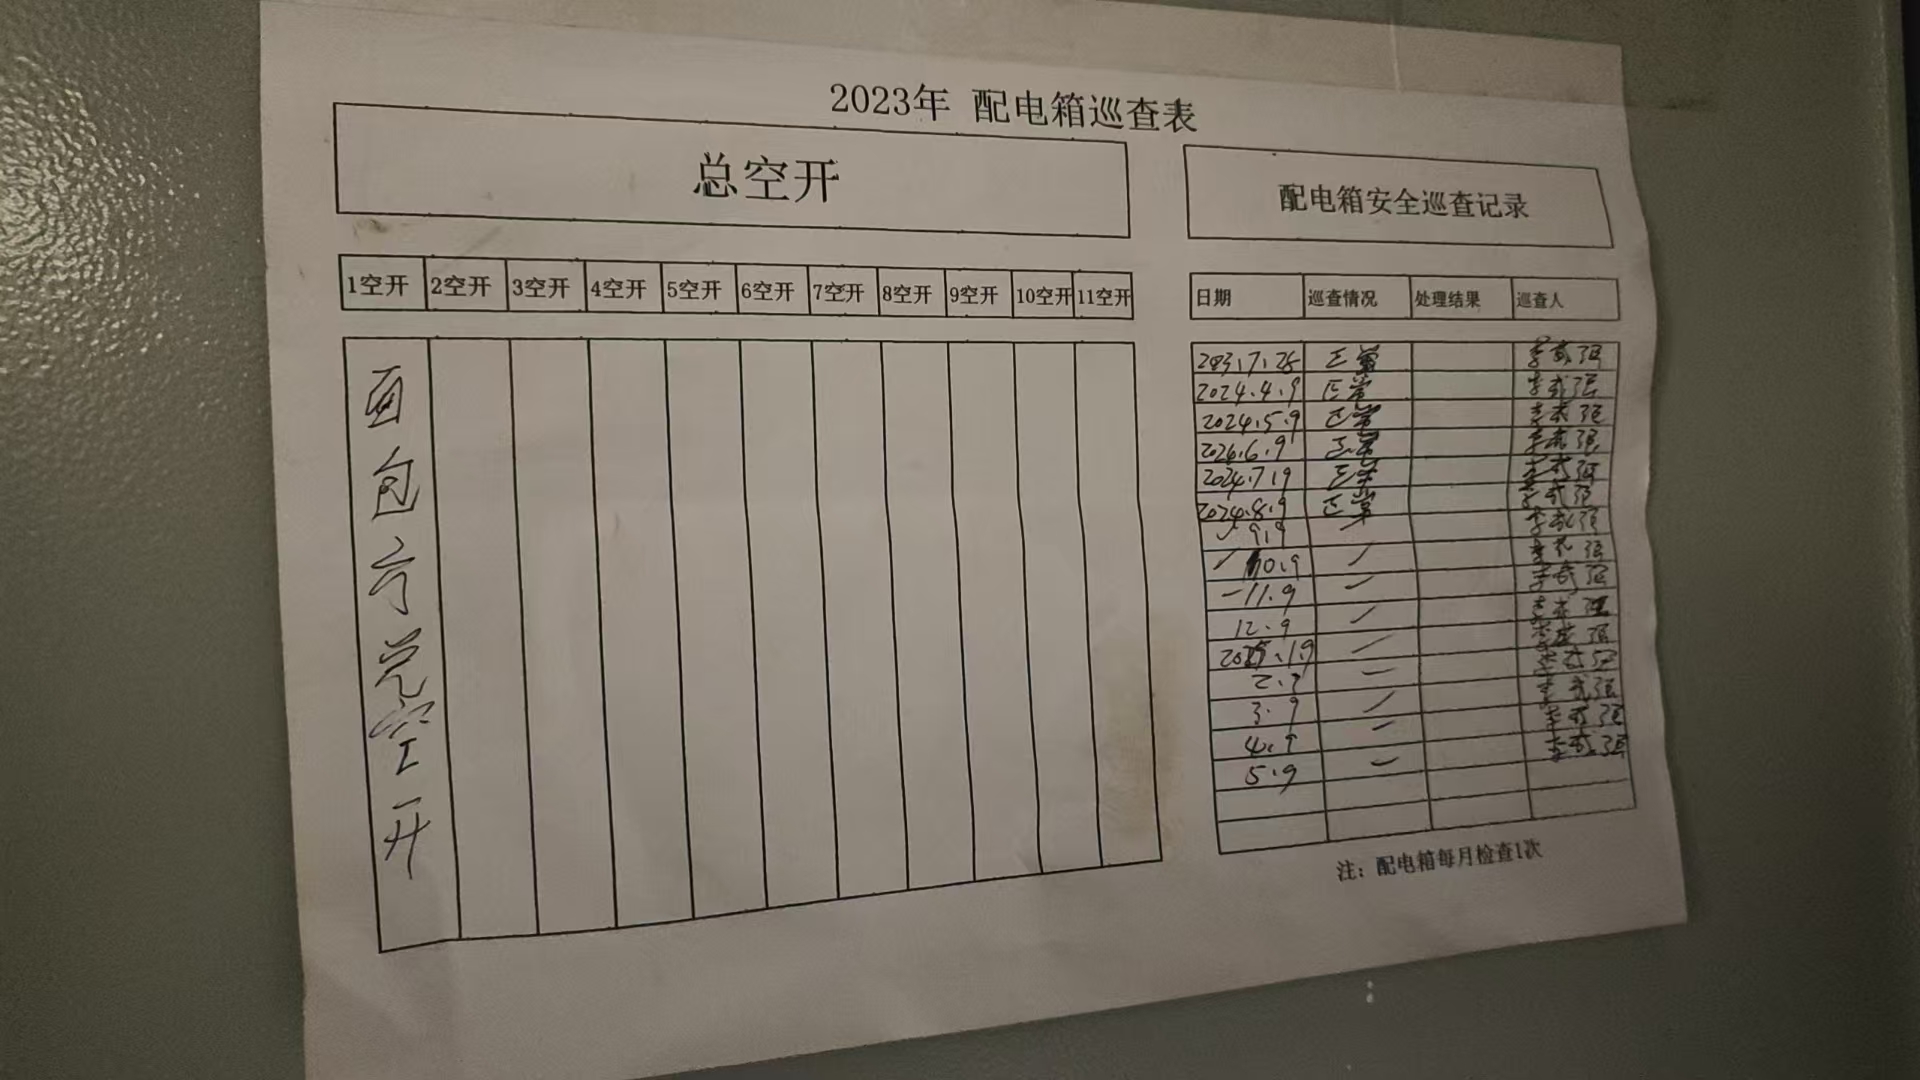 2023年 配电箱巡查表
总空开
1空开 2空开 3空开 4空开 5空开 6空开 7空开 8空开 9空开 10空开 11空开
面包房总空开
配电箱安全巡查记录
日期 巡查情况 处理结果 巡查人
2023.7.28 正常 李武强
2024.4.9 正常 李武强
2024.5.9 正常 李武强
2024.6.9 正常 李武强
2024.7.9 正常 李武强
2024.8.9 正常 李武强
9.9 李武强
10.9 李武强
11.9 李武强
12.9 李武强
2025.1.9 李武强
2.9 李武强
3.9 李武强
4.9 李武强
5.9 李武强
注：配电箱每月检查1次